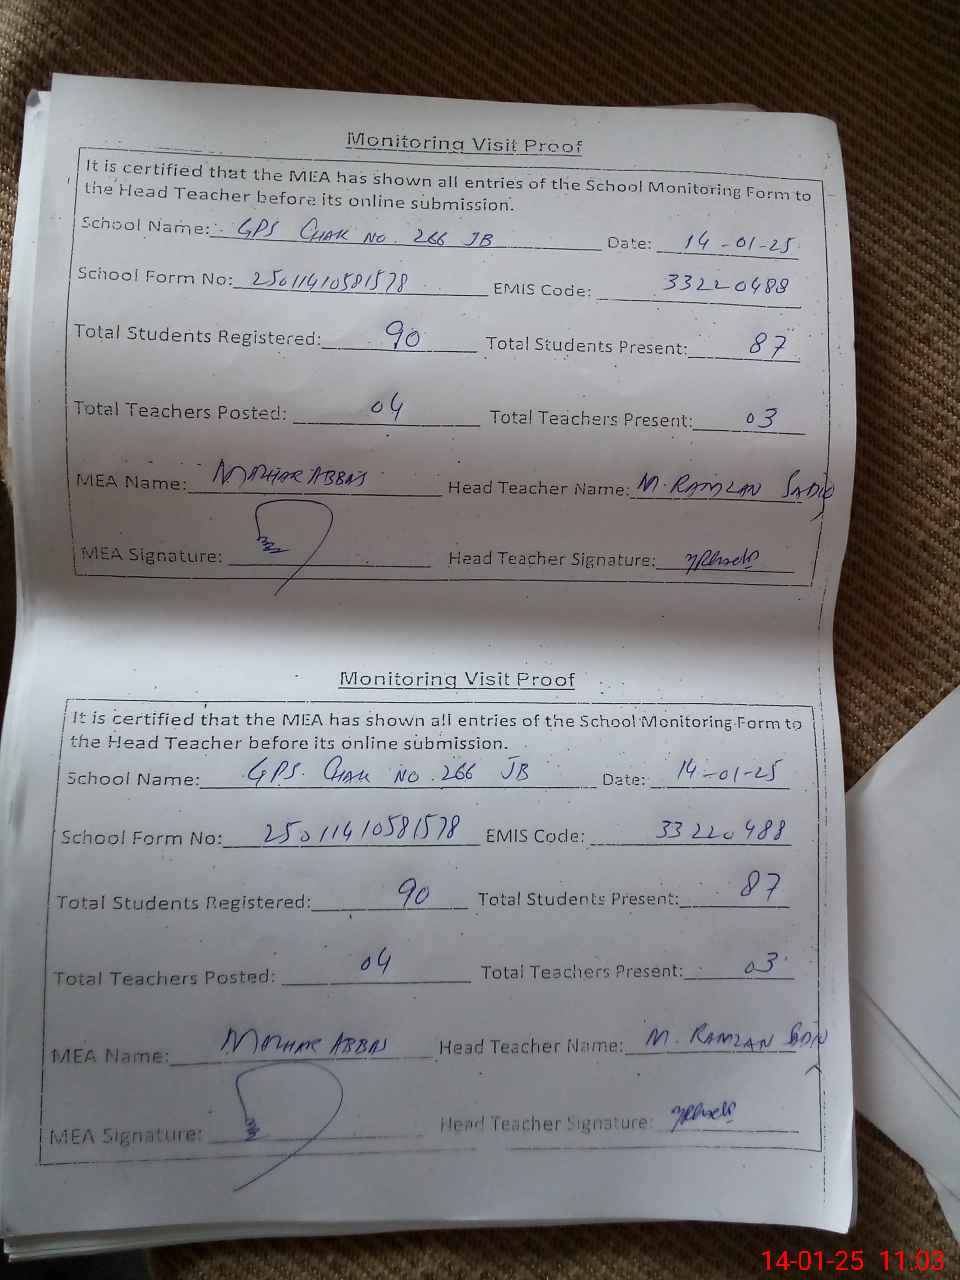 Monitoring Visit Proof
It is certified that the MEA has shown all entries of the School Monitoring Form to
the Head Teacher before its online submission.
School Name: GPS CHAK NO. 266 JB Date: 14-01-25
School Form No: 25011410581578 EMIS Code: 33220488
Total Students Registered: 90 Total Students Present: 87
Total Teachers Posted: 04 Total Teachers Present: 03
MEA Name: MAZHAR ABBAS Head Teacher Name: M. RAMZAN
MEA Signature: Head Teacher Signature:
Monitoring Visit Proof
It is certified that the MEA has shown all entries of the School Monitoring Form to
the Head Teacher before its online submission.
School Name: GPS. CHAK NO. 266 JB Date: 14-01-25
School Form No: 25011410581578 EMIS Code: 33220488
Total Students Registered: 90 Total Students Present: 87
Total Teachers Posted: 04 Total Teachers Present: 03
MEA Name: MAZHAR ABBAS Head Teacher Name: M. RAMZAN
MEA Signature: Head Teacher Signature:
14-01-25 11:03